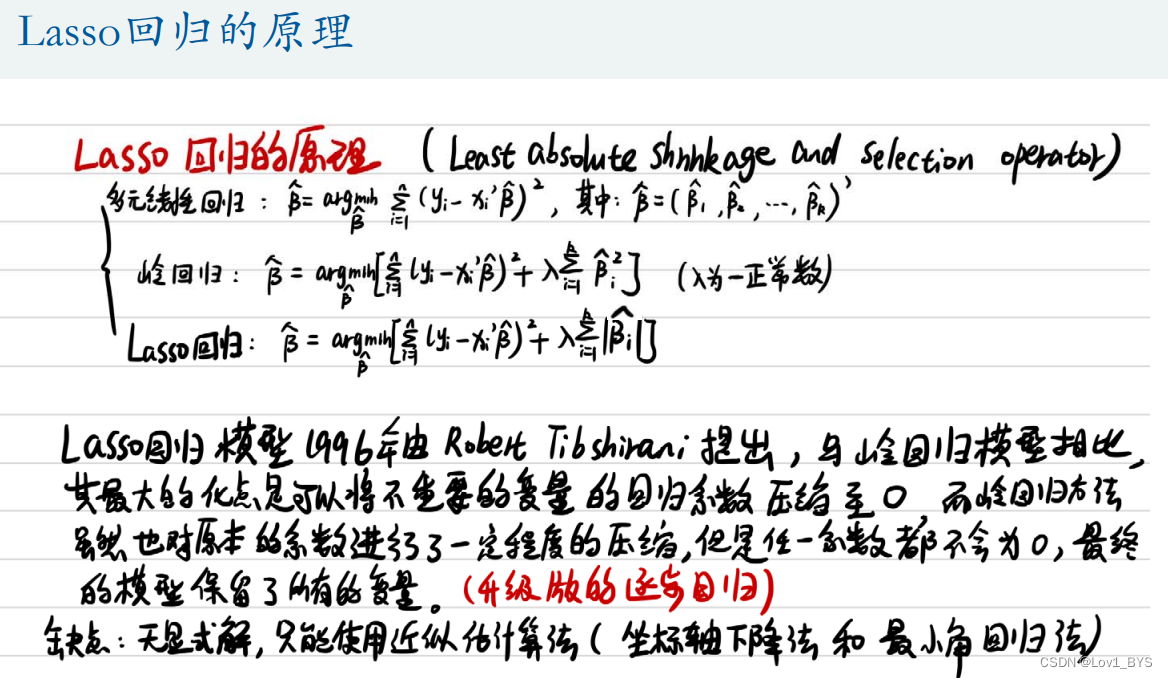 Lasso回归的原理
Lasso 回归的原理 (Least absolute shrinkage and selection operator)
多元线性回归: β̂ = argmin_β̂ Σ_{i=1}^{n} (yᵢ - xᵢ'β̂)², 其中: β̂ = (β̂₁, β̂₂, ..., β̂ₖ)'
岭回归: β̂ = argmin_β̂ [Σ_{i=1}^{n} (yᵢ - xᵢ'β̂)² + λ Σ_{i=1}^{k} β̂ᵢ²] (λ为一正常数)
Lasso回归: β̂ = argmin_β̂ [Σ_{i=1}^{n} (yᵢ - xᵢ'β̂)² + λ Σ_{i=1}^{k} |β̂ᵢ|]
Lasso回归模型1996年由 Robert Tibshirani 提出, 与岭回归模型相比,
其最大的优点是可以将不重要的变量的回归系数压缩至0, 而岭回归方法
虽然也对原本的系数进行了一定程度的压缩, 但是任一系数都不会为0, 最终
的模型保留了所有的变量。(升级版的逐步回归)
缺点: 无显式解, 只能使用近似估计算法 (坐标轴下降法和最小角回归法)
CSDN @Lov1_BYS